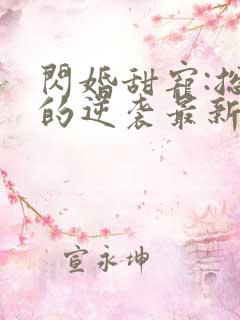 閃婚甜寵:
的逆袭最新
宣永坤